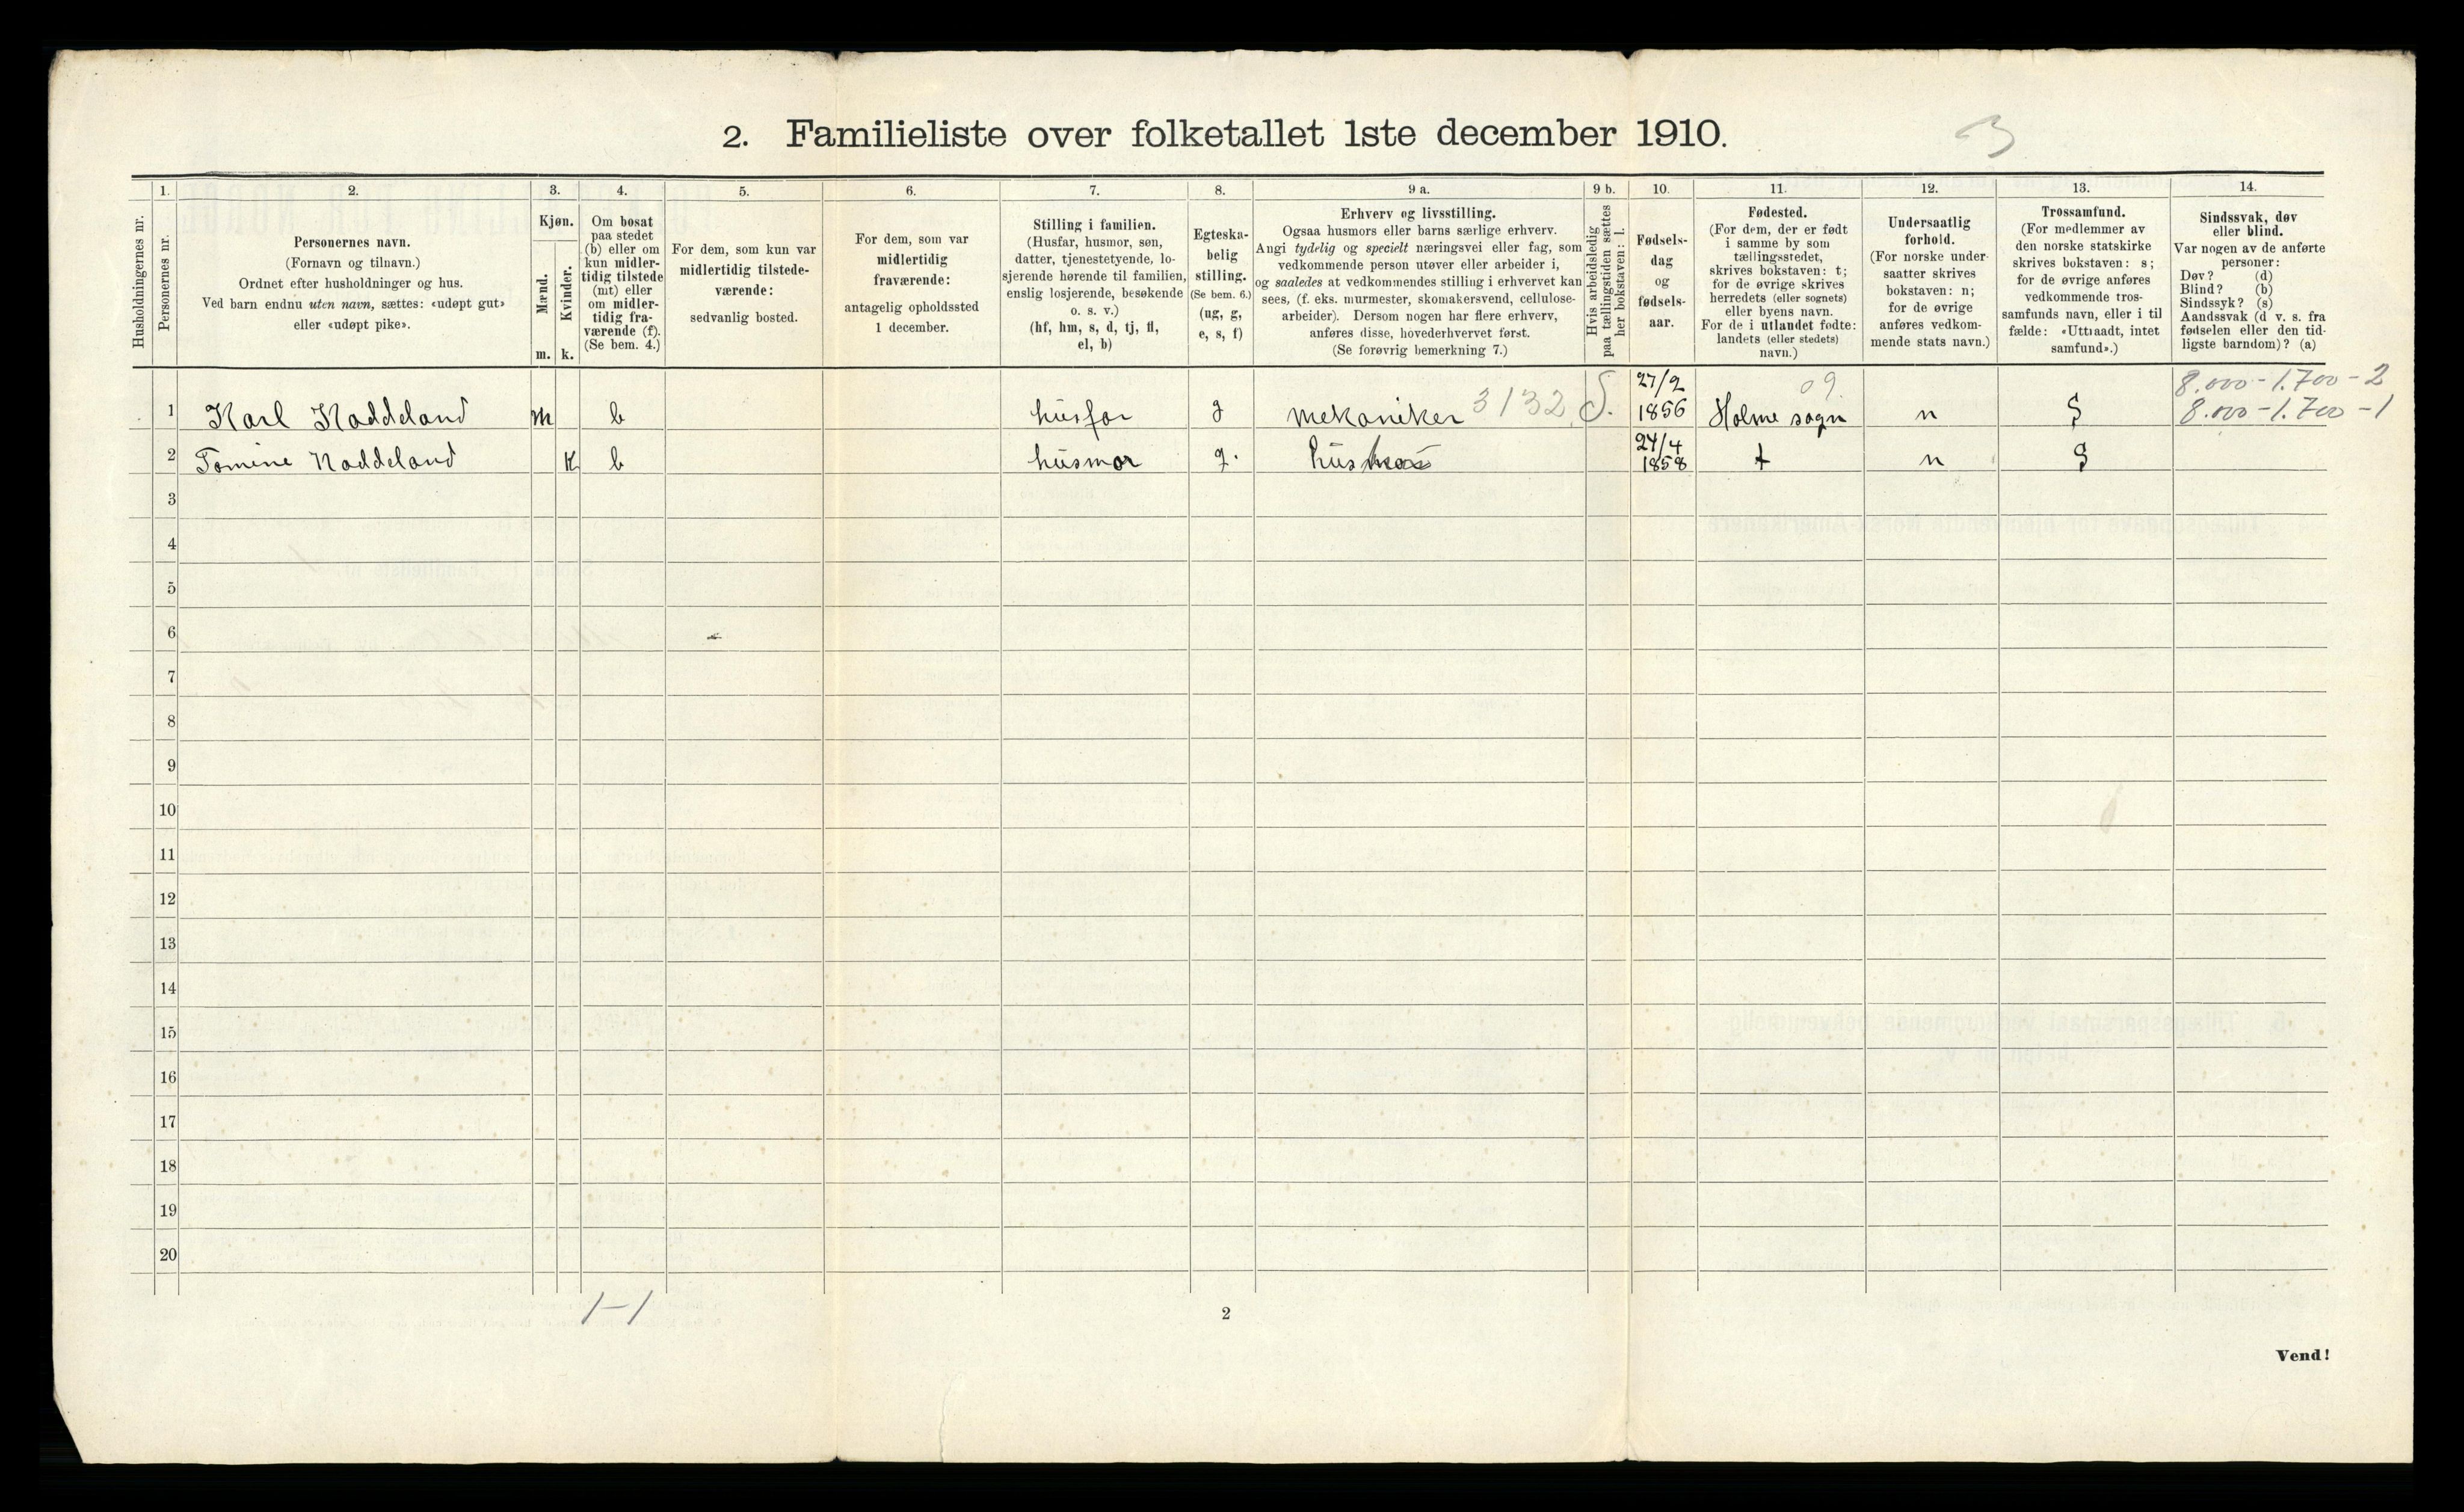 2. Familieliste over folketallet 1ste december 1910.
3
1. 2. 3. 4. 5. 6. 7. 8. 9 a. 9 b. 10. 11. 12. 13. 14.
Husholdningernes nr.
Personernes nr.
Personernes navn.
(Fornavn og tilnavn.)
Ordnet efter husholdninger og hus.
Ved barn endnu uten navn, sættes: «udøpt gut»
eller «udøpt pike».
Kjøn.
Mænd.
Kvinder.
m. k.
Om bosat
paa stedet
(b) eller om
kun midler-
tidig tilstede
(mt) eller
om midler-
tidig fra-
værende (f).
(Se bem. 4.)
For dem, som kun var
midlertidig tilstede-
værende:
sedvanlig bosted.
For dem, som var
midlertidig
fraværende:
antagelig opholdssted
1 december.
Stilling i familien.
(Husfar, husmor, søn,
datter, tjenestetyende, lo-
sjerende hørende til familien,
enslig losjerende, besøkende
o. s. v.)
(hf, hm, s, d, tj, fl,
el, b)
Egteska-
belig
stilling.
(Se bem. 6.)
(ug, g,
e, s, f)
Erhverv og livsstilling.
Ogsaa husmors eller barns særlige erhverv.
Angi tydelig og specielt næringsvei eller fag, som
vedkommende person utøver eller arbeider i,
og saaledes at vedkommendes stilling i erhvervet kan
sees, (f. eks. murmester, skomakersvend, cellulose-
arbeider). Dersom nogen har flere erhverv,
anføres disse, hovederhvervet først.
(Se forøvrig bemerkning 7.)
Hvis arbeidsledig
paa tællingstiden sættes
her bokstaven: l.
Fødsels-
dag
og
fødsels-
aar.
Fødested.
(For dem, der er født
i samme by som
tællingsstedet,
skrives bokstaven: t;
for de øvrige skrives
herredets (eller sognets)
eller byens navn.
For de i utlandet fødte:
landets (eller stedets)
navn.)
Undersaatlig
forhold.
(For norske under-
saatter skrives
bokstaven: n;
for de øvrige
anføres vedkom-
mende stats navn.)
Trossamfund.
(For medlemmer av
den norske statskirke
skrives bokstaven: s;
for de øvrige anføres
vedkommende tros-
samfunds navn, eller i til
fælde: «Uttraadt, intet
samfund».)
Sindssvak, døv
eller blind.
Var nogen av de anførte
personer:
Døv? (d)
Blind? (b)
Sindssyk? (s)
Aandssvak (d v. s. fra
fødselen eller den tid-
ligste barndom)? (a)
27/2 09. 8.000 - 1.700 - 2
1 Karl Haddeland m b husfar g mekaniker 3132 S. 1856 Holme sogn n S 8.000 - 1.700 - 1
24/4
2 Tomine Haddeland K b husmor g. 1858 t n S
3
4
5
6
7
8
9
10
11
12
13
14
15
16
17
18
19
20
1-1
2
Vend!